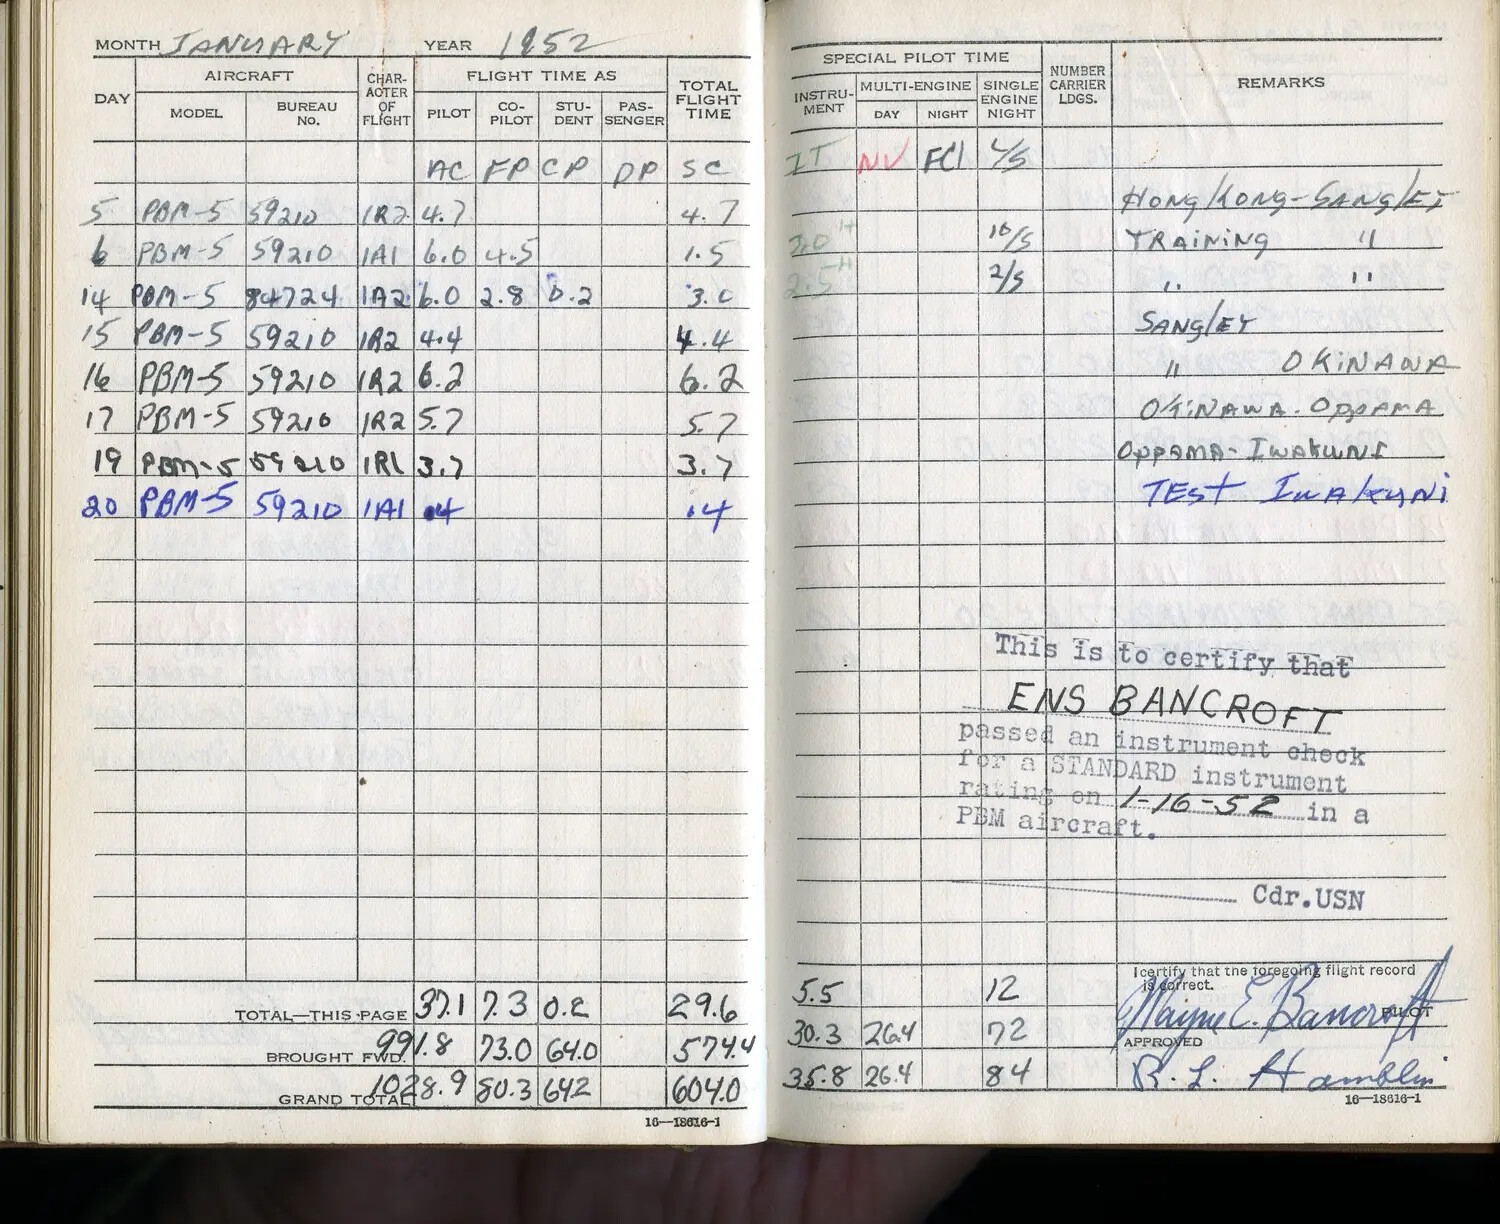 MONTH JANUARY YEAR 1952
DAY AIRCRAFT CHAR-AOTER OF FLIGHT FLIGHT TIME AS TOTAL FLIGHT TIME
MODEL BUREAU NO. PILOT CO-PILOT STU-DENT PAS-SENGER
AC FP CP DP SC
5 PBM-5 59210 1R2 4.7 4.7
6 PBM-5 59210 1A1 6.0 4.5 1.5
14 PBM-5 84724 1A2 6.0 2.8 0.2 3.0
15 PBM-5 59210 1R2 4.4 4.4
16 PBM-5 59210 1R2 6.2 6.2
17 PBM-5 59210 1R2 5.7 5.7
19 PBM-5 59210 1R1 3.7 3.7
20 PBM-5 59210 1A1 .4 .4
TOTAL—THIS PAGE 37.1 7.3 0.2 29.6
BROUGHT FWD. 991.8 73.0 64.0 574.4
GRAND TOTAL 1028.9 80.3 642 604.0
16—18616-1
SPECIAL PILOT TIME NUMBER CARRIER LDGS. REMARKS
INSTRU-MENT MULTI-ENGINE SINGLE ENGINE NIGHT
DAY NIGHT
IT NV FCI 4/S
HONG KONG-SANGLEY
3.0 H 10/S TRAINING "
2.5 H 2/S " "
SANGLEY
" OKINAWA
OKINAWA-OPPAMA
OPPAMA-IWAKUNI
TEST IWAKUNI
This is to certify that
ENS BANCROFT
passed an instrument check
for a STANDARD instrument
rating on 1-16-52 in a
PBM aircraft.
Cdr.USN
I certify that the foregoing flight record
is correct.
5.5 12 Wayne E. Bancroft PILOT
30.3 26.4 72
APPROVED
35.8 26.4 84 R. L. Hamblin
16—18616-1